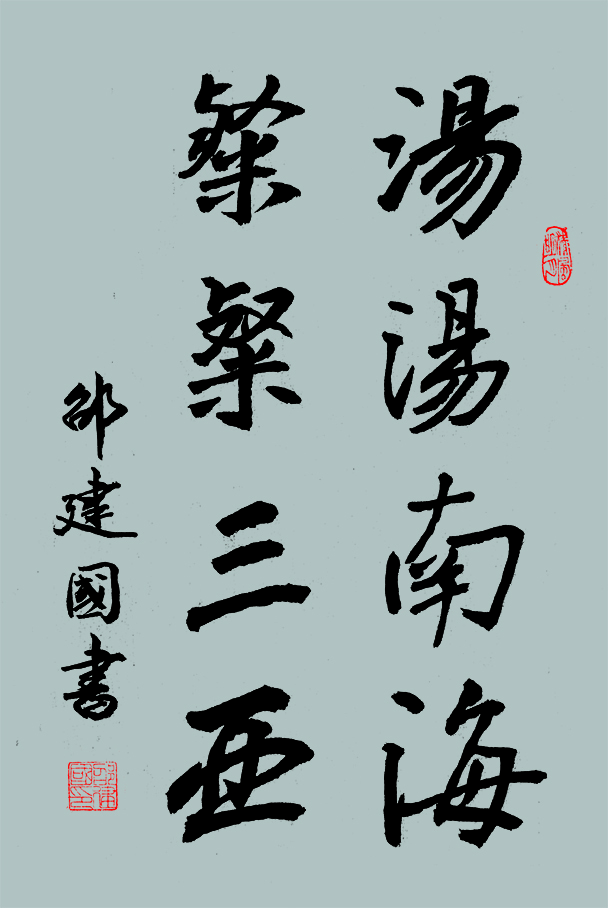 湯湯南海
粲粲三亞
邵建國書